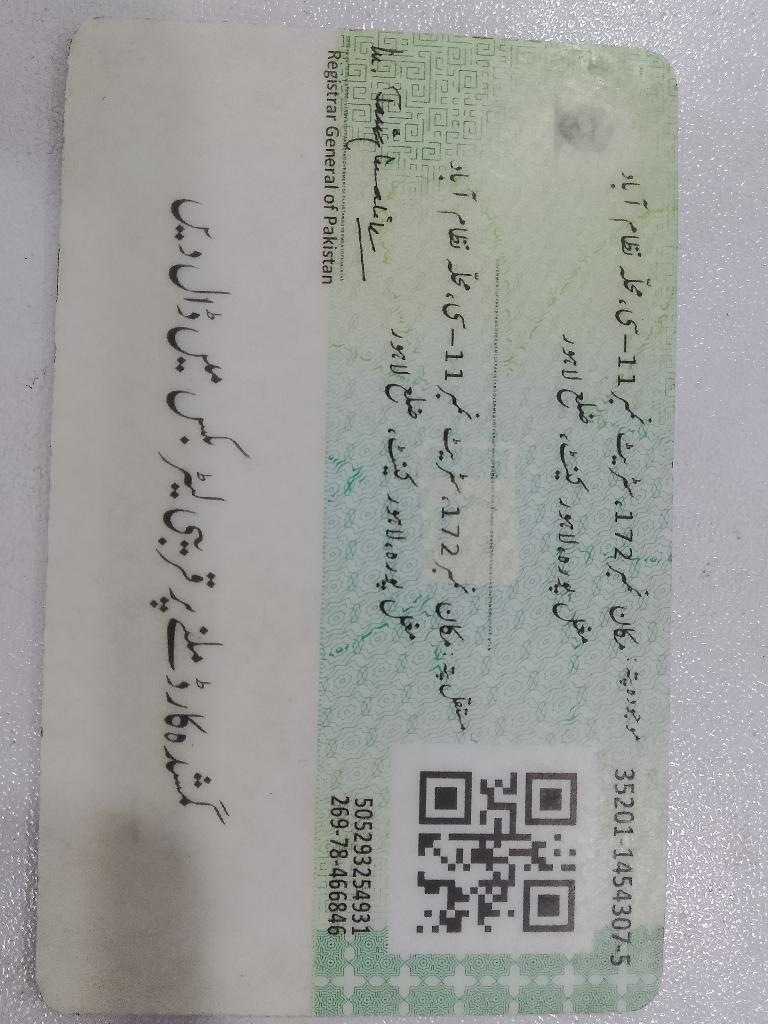 35201-1454307-5
موجودہ پتہ: مکان نمبر 172، سٹریٹ نمبر 11-سی، محلہ نظام آباد
مغل پورہ، لاہور کینٹ، ضلع لاہور
مستقل پتہ: مکان نمبر 172، سٹریٹ نمبر 11-سی، محلہ نظام آباد
مغل پورہ، لاہور کینٹ، ضلع لاہور
505293254931
269-78-466846
Registrar General of Pakistan
گمشدہ کارڈ ملنے پر قریبی لیٹر بکس میں ڈال دیں